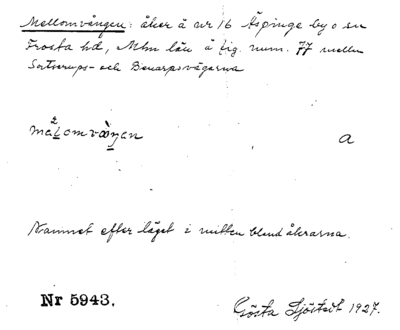 Mellomvången: åker å nr 16 Äspinge by o sn
Frosta hd, Mlm län å fig. num. 77 mellan
Sextorps- och Benarpsvägarna
mälomvàŋen a
Namnet efter läget i mitten bland åkrarna.
Nr 5943. Gösta Sjöstedt 1927.